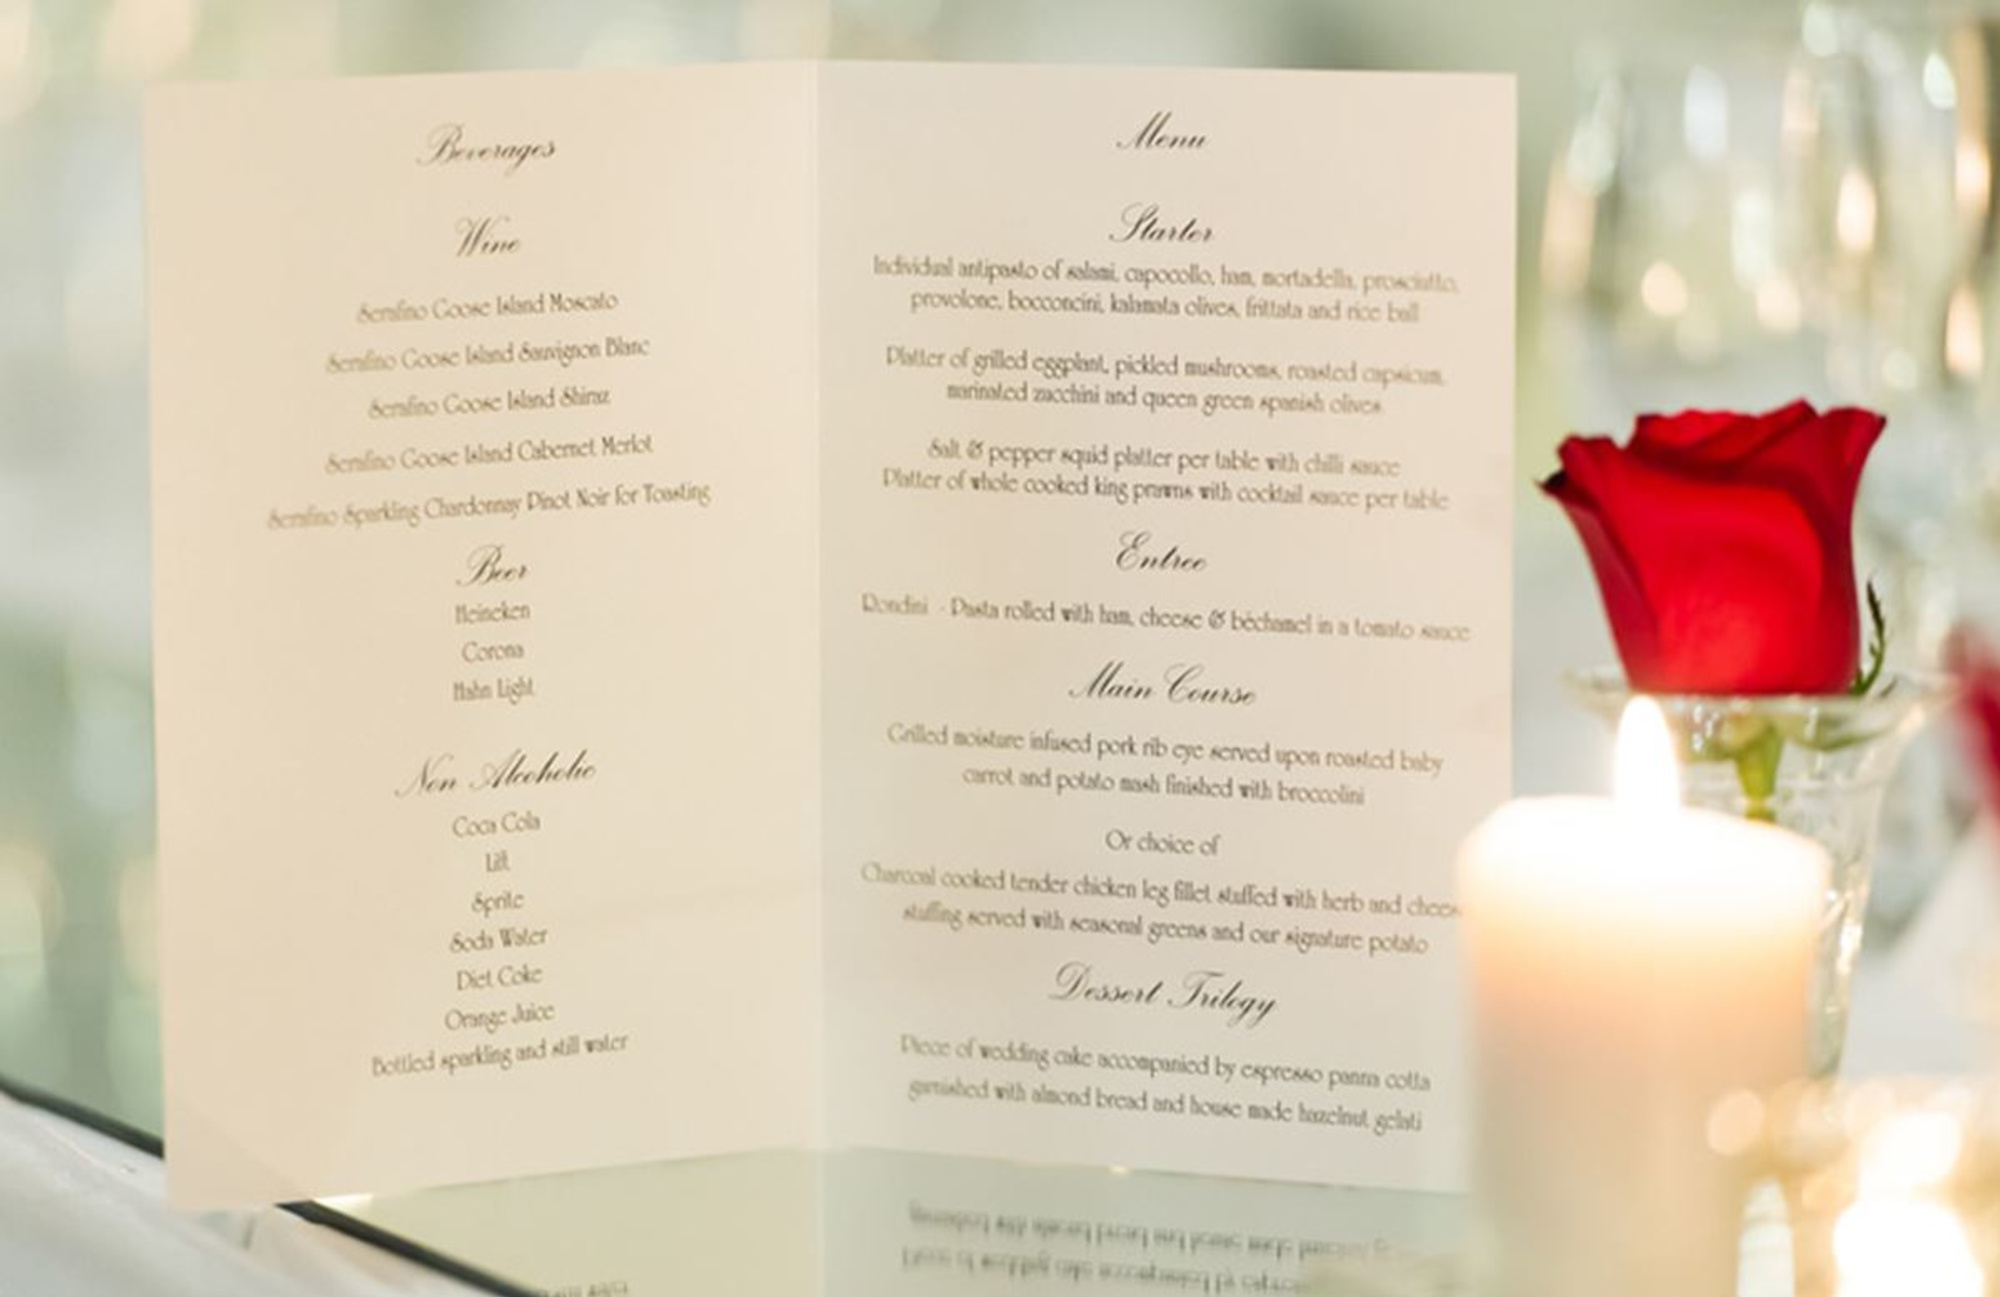 Beverages
Wine
Serafino Goose Island Moscato
Serafino Goose Island Sauvignon Blanc
Serafino Goose Island Shiraz
Serafino Goose Island Cabernet Merlot
Serafino Sparkling Chardonnay Pinot Noir for Toasting
Beer
Heineken
Corona
Hahn Light
Non Alcoholic
Coca Cola
Lift
Sprite
Soda Water
Diet Coke
Orange Juice
Bottled sparkling and still water
Menu
Starter
Individual antipasto of salami, capocollo, ham, mortadella, prosciutto,
provolone, bocconcini, kalamata olives, frittata and rice ball
Platter of grilled eggplant, pickled mushrooms, roasted capsicum,
marinated zucchini and queen green spanish olives
Salt & pepper squid platter per table with chilli sauce
Platter of whole cooked king prawns with cocktail sauce per table
Entree
Rondini - Pasta rolled with ham, cheese & béchamel in a tomato sauce
Main Course
Grilled moisture infused pork rib eye served upon roasted baby
carrot and potato mash finished with broccolini
Or choice of
Charcoal cooked tender chicken leg fillet stuffed with herb and chees
stuffing served with seasonal greens and our signature potato
Dessert Trilogy
Piece of wedding cake accompanied by espresso panna cotta
garnished with almond bread and house made hazelnut gelati